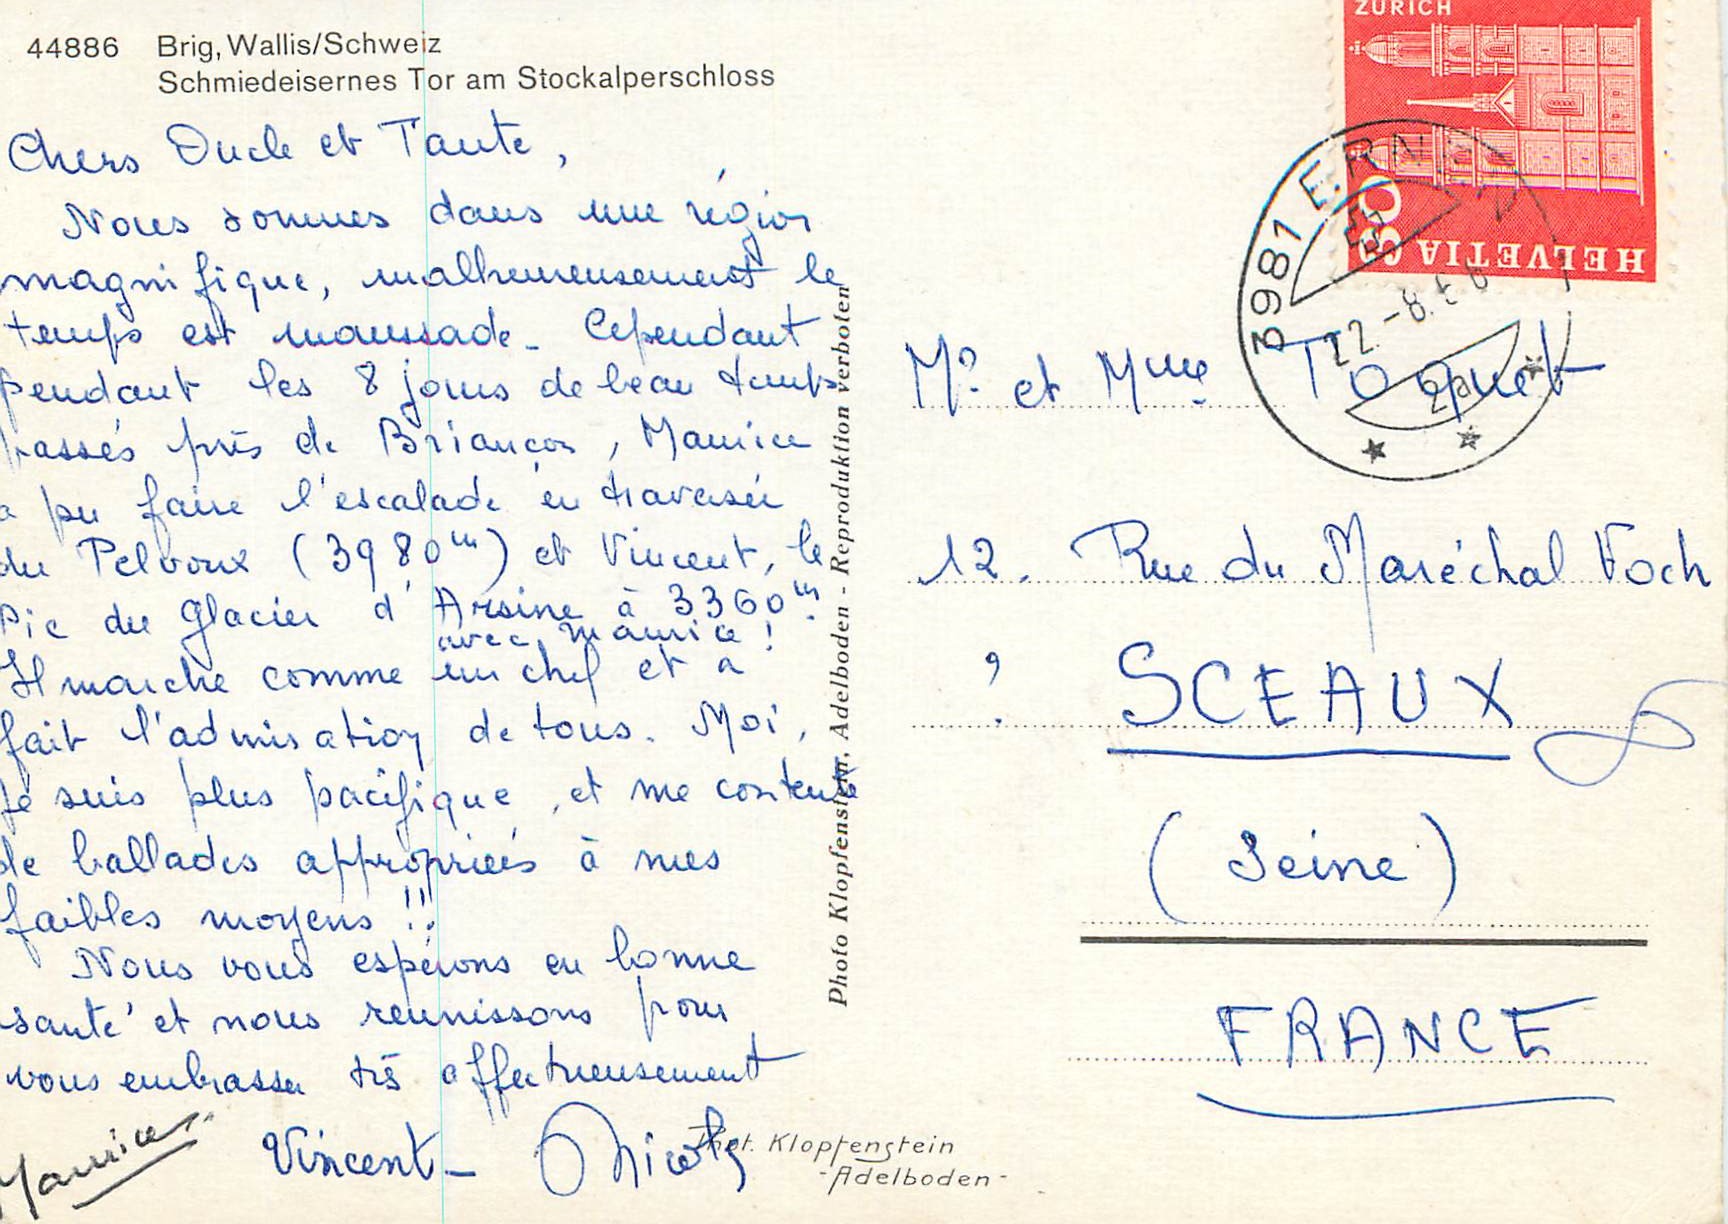 44886 Brig, Wallis/Schweiz
Schmiedeisernes Tor am Stockalperschloss
Chers Oncle et Tante,
Nous sommes dans une région
magnifique, malheureusement le
temps est maussade - Cependant
pendant les 8 jours de beau temps
passés près de Briançon, Maurice
a pu faire l'escalade en traversée
du Pelvoux (3980m) et Vincent, le
Pic du glacier d'Arsine à 3360m
avec Maurice !
Il marche comme un chef et a
fait l'admiration de tous. Moi,
je suis plus pacifique, et me contente
de ballades appropriées à mes
faibles moyens !!
Nous vous espérons en bonne
santé et nous réunissons pour
vous embrasser très affectueusement
Maurice
Vincent - Nicole
Phot. Klopfenstein
- Adelboden -
Photo Klopfenstein, Adelboden - Reproduktion verboten
ZÜRICH
HELVETIA
3981 ERNEN
22.-8.
Mr et Mme Toquet
12. Rue du Maréchal Foch
SCEAUX
(Seine)
FRANCE